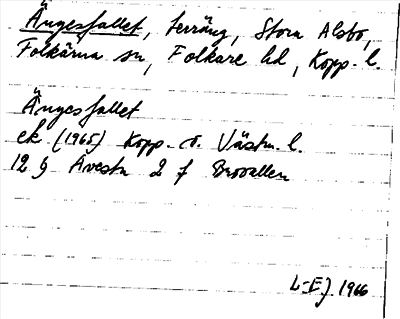 Ängesfallet, terräng, Stora Alsbo,
Folkärna sn, Folkare hd, Kopp. l.
Ängesfallet
ek. (1965) Kopp. o. Västm. l.
12 G Avesta 2 f Brovallen
L-E J. 1966